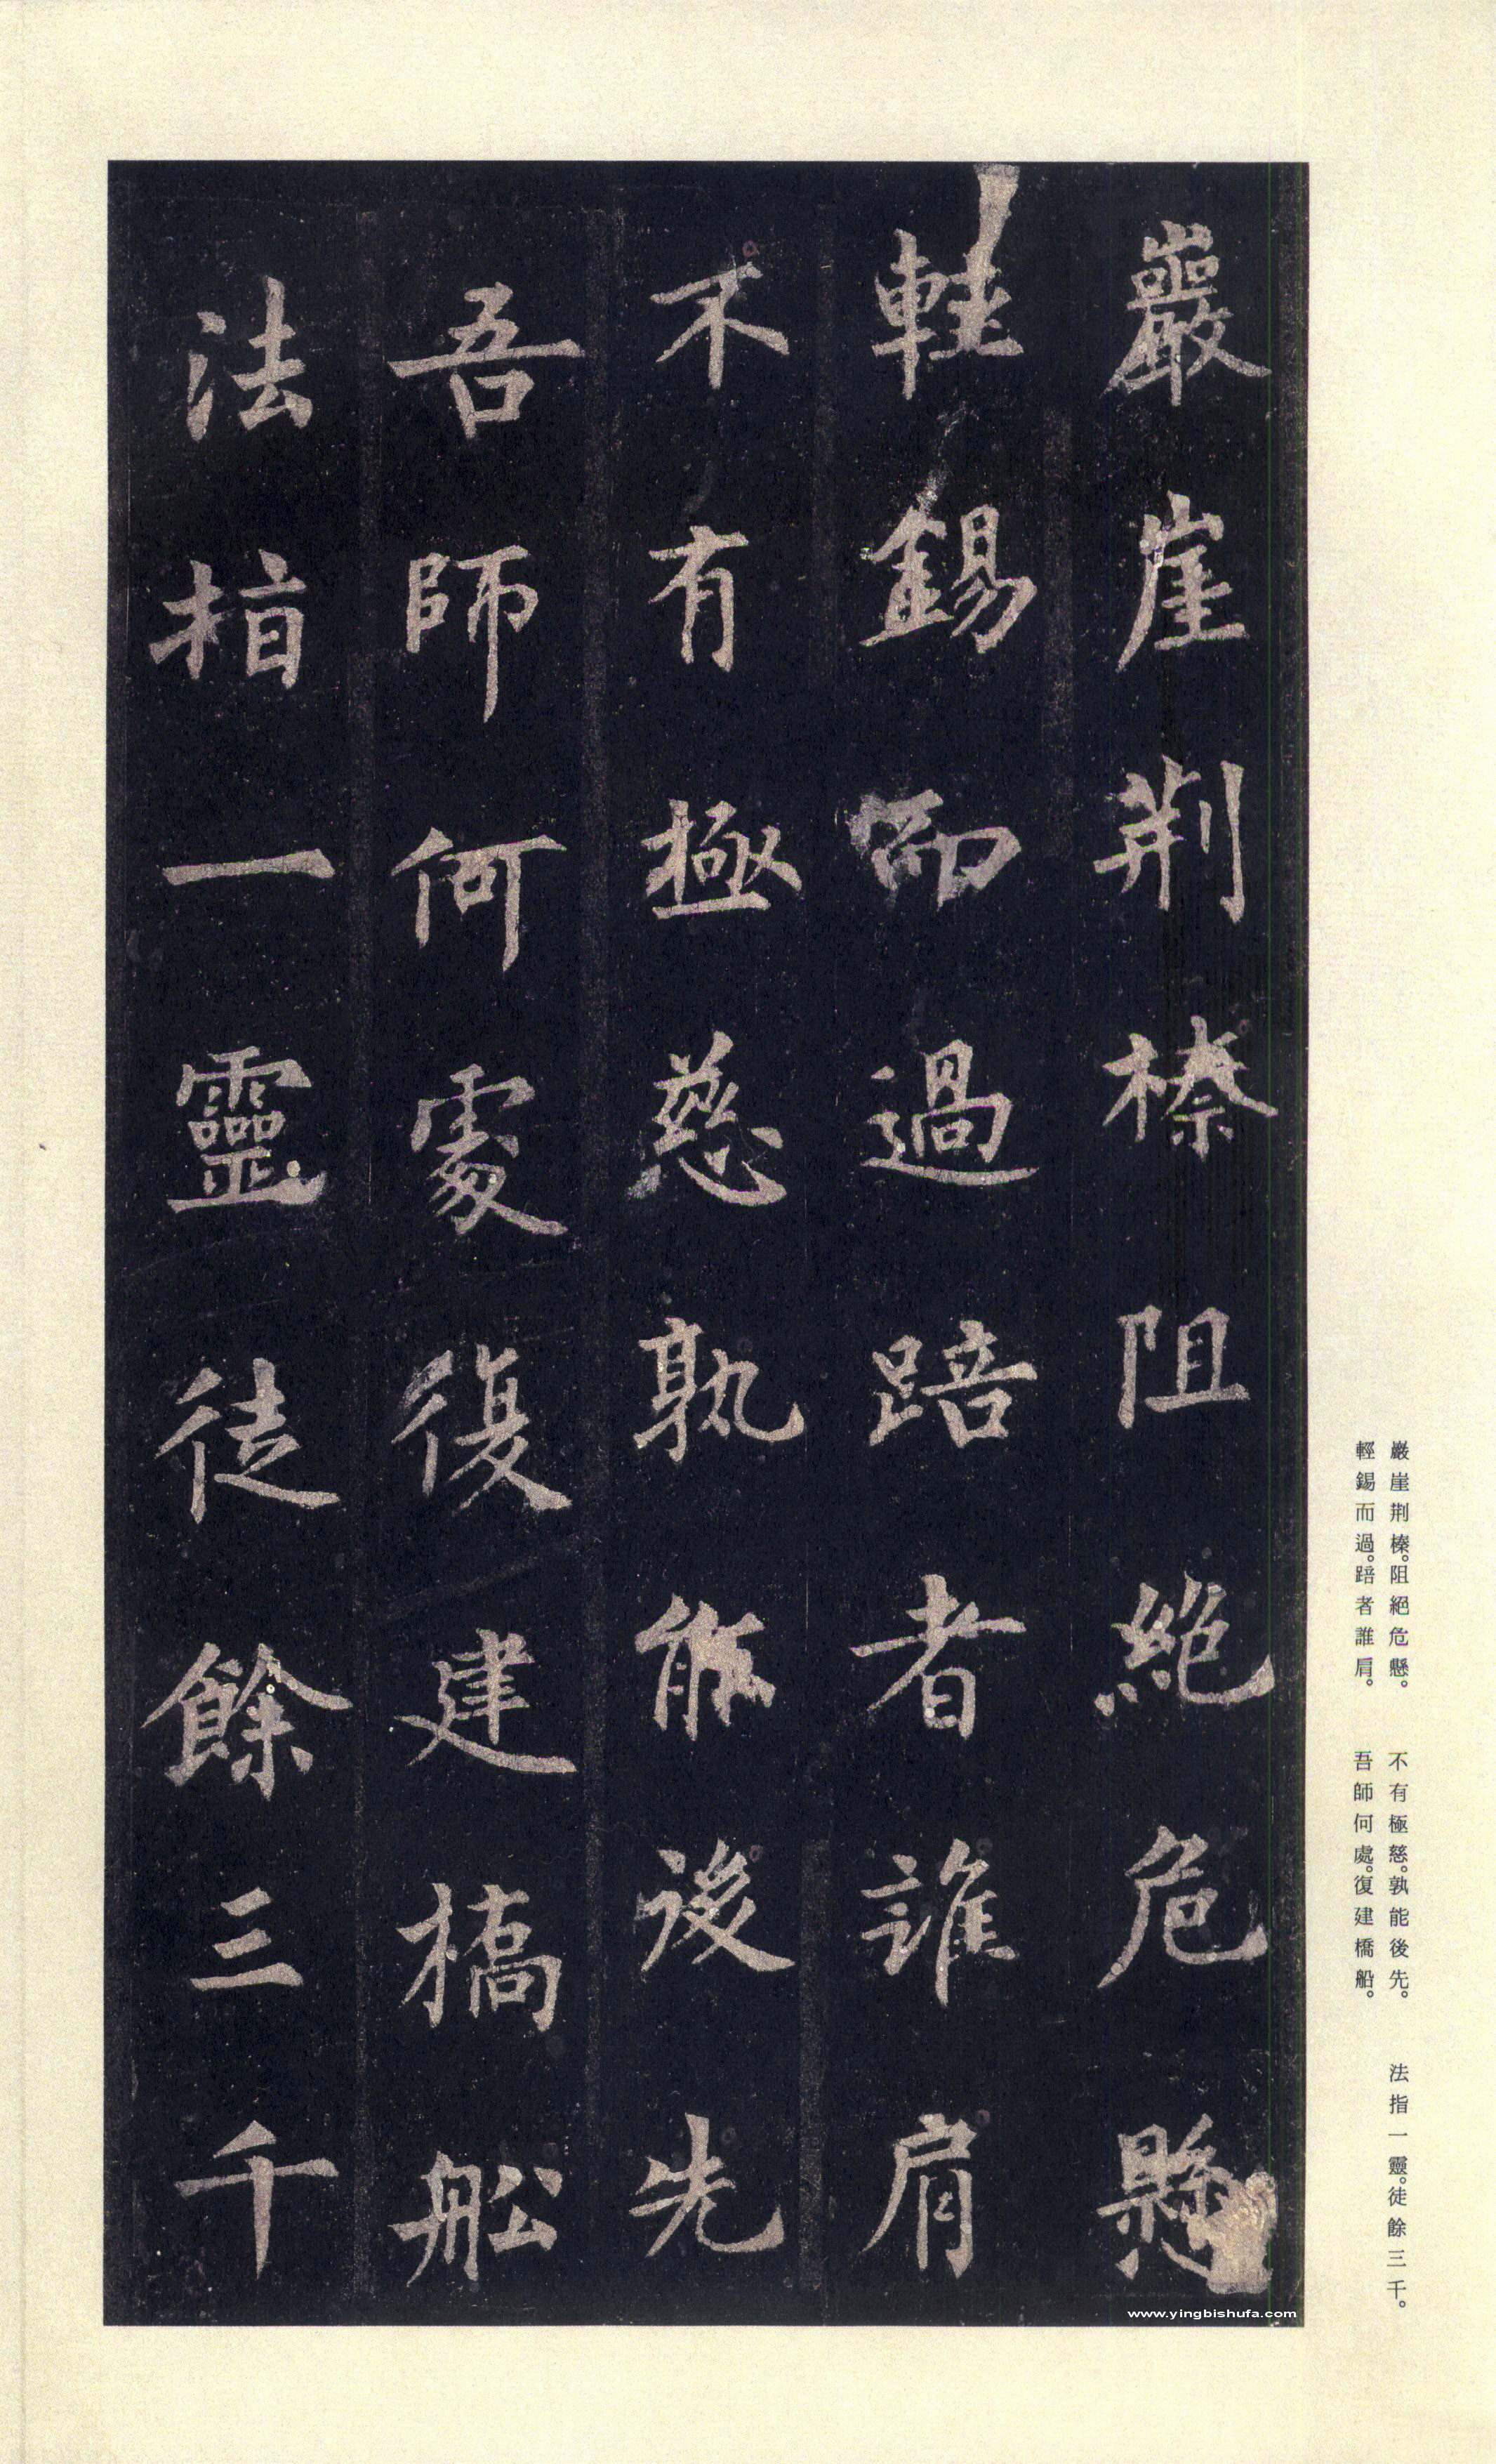 巖崖荆榛阻絕危懸
輕錫而過踣者誰肩
不有極慈孰能後先
吾師何處復建橋船
法指一靈徒餘三千
巖崖荆榛。阻絕危懸。
輕錫而過。踣者誰肩。
不有極慈。孰能後先。
吾師何處。復建橋船。
法指一靈。徒餘三千。
www.yingbishufa.com